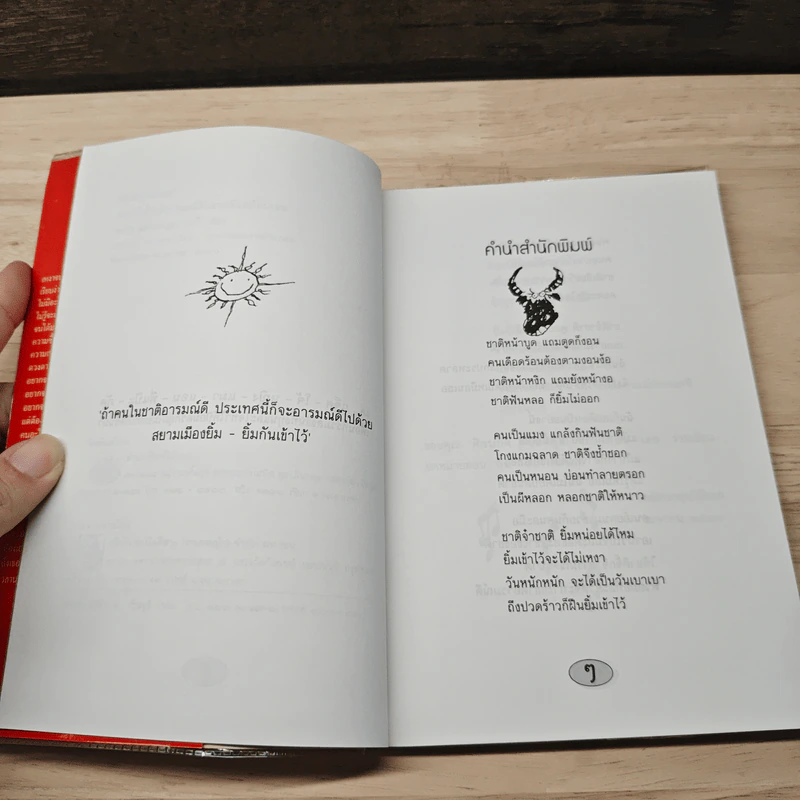 'ถ้าคนในชาติอารมณ์ดี ประเทศนี้ก็จะอารมณ์ดีไปด้วย
สยามเมืองยิ้ม - ยิ้มกันเข้าไว้'
คำนำสำนักพิมพ์
ชาติหน้าบูด แถมตูดก็งอน
คนเดือดร้อนต้องตามงอนง้อ
ชาติหน้าหงิก แถมยังหน้างอ
ชาติฟันหลอ ก็ยิ้มไม่ออก
คนเป็นแมง แกล้งกินฟันชาติ
โกงแกมฉลาด ชาติจึงช้ำชอก
คนเป็นหนอน บ่อนทำลายตรอก
เป็นผีหลอก หลอกชาติให้หนาว
ชาติจ๋าชาติ ยิ้มหน่อยได้ไหม
ยิ้มเข้าไว้จะได้ไม่เหงา
วันหนักหนัก จะได้เป็นวันเบาเบา
ถึงปวดร้าวก็ฝืนยิ้มเข้าไว้
ๆ